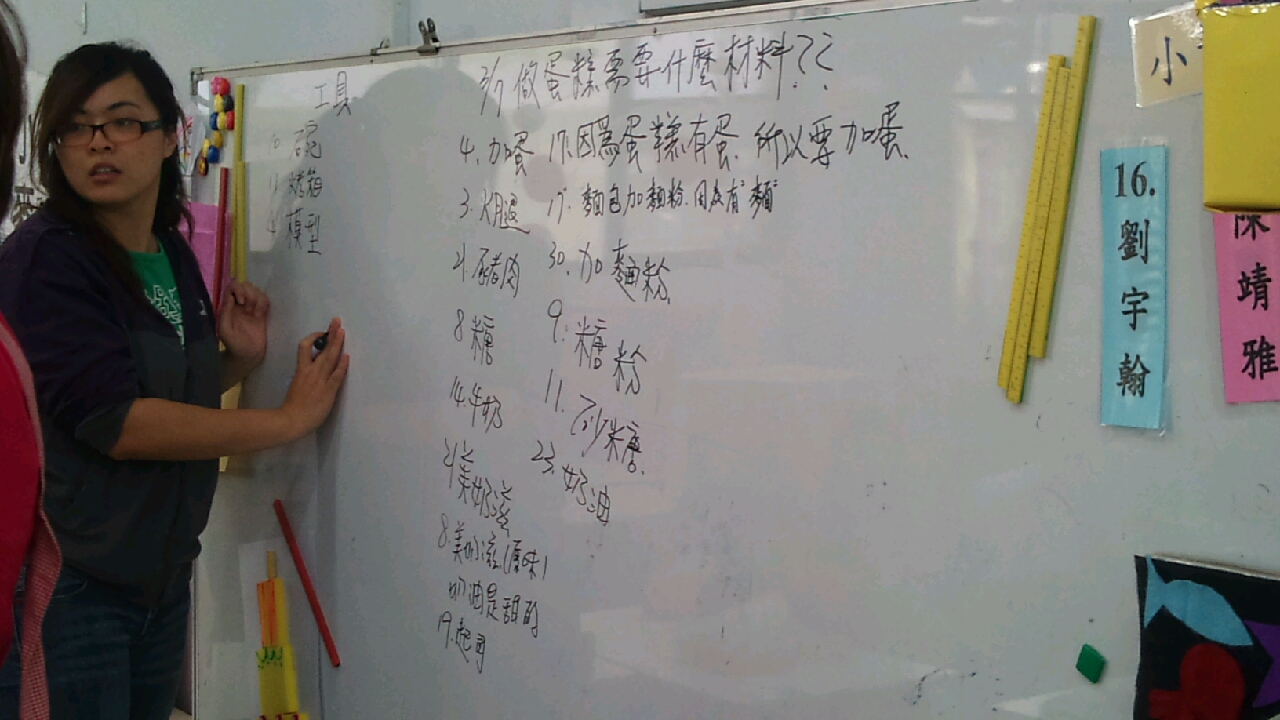 工具
碗
烤箱
4 模型
3/1 做蛋糕需要什麼材料??
4. 加蛋 17.因為蛋糕有蛋.所以要加蛋.
3. 火腿 17. 麵包加麵粉.因為有"麵"
21 豬肉 30. 加麵粉
8 糖 9. 糖粉
14. 牛奶 11. 砂糖.
21 美奶滋 23. 奶油
8. 美奶滋(原味)
奶油是甜的
19. 起司
小
16.
劉
宇
翰
陳
靖
雅